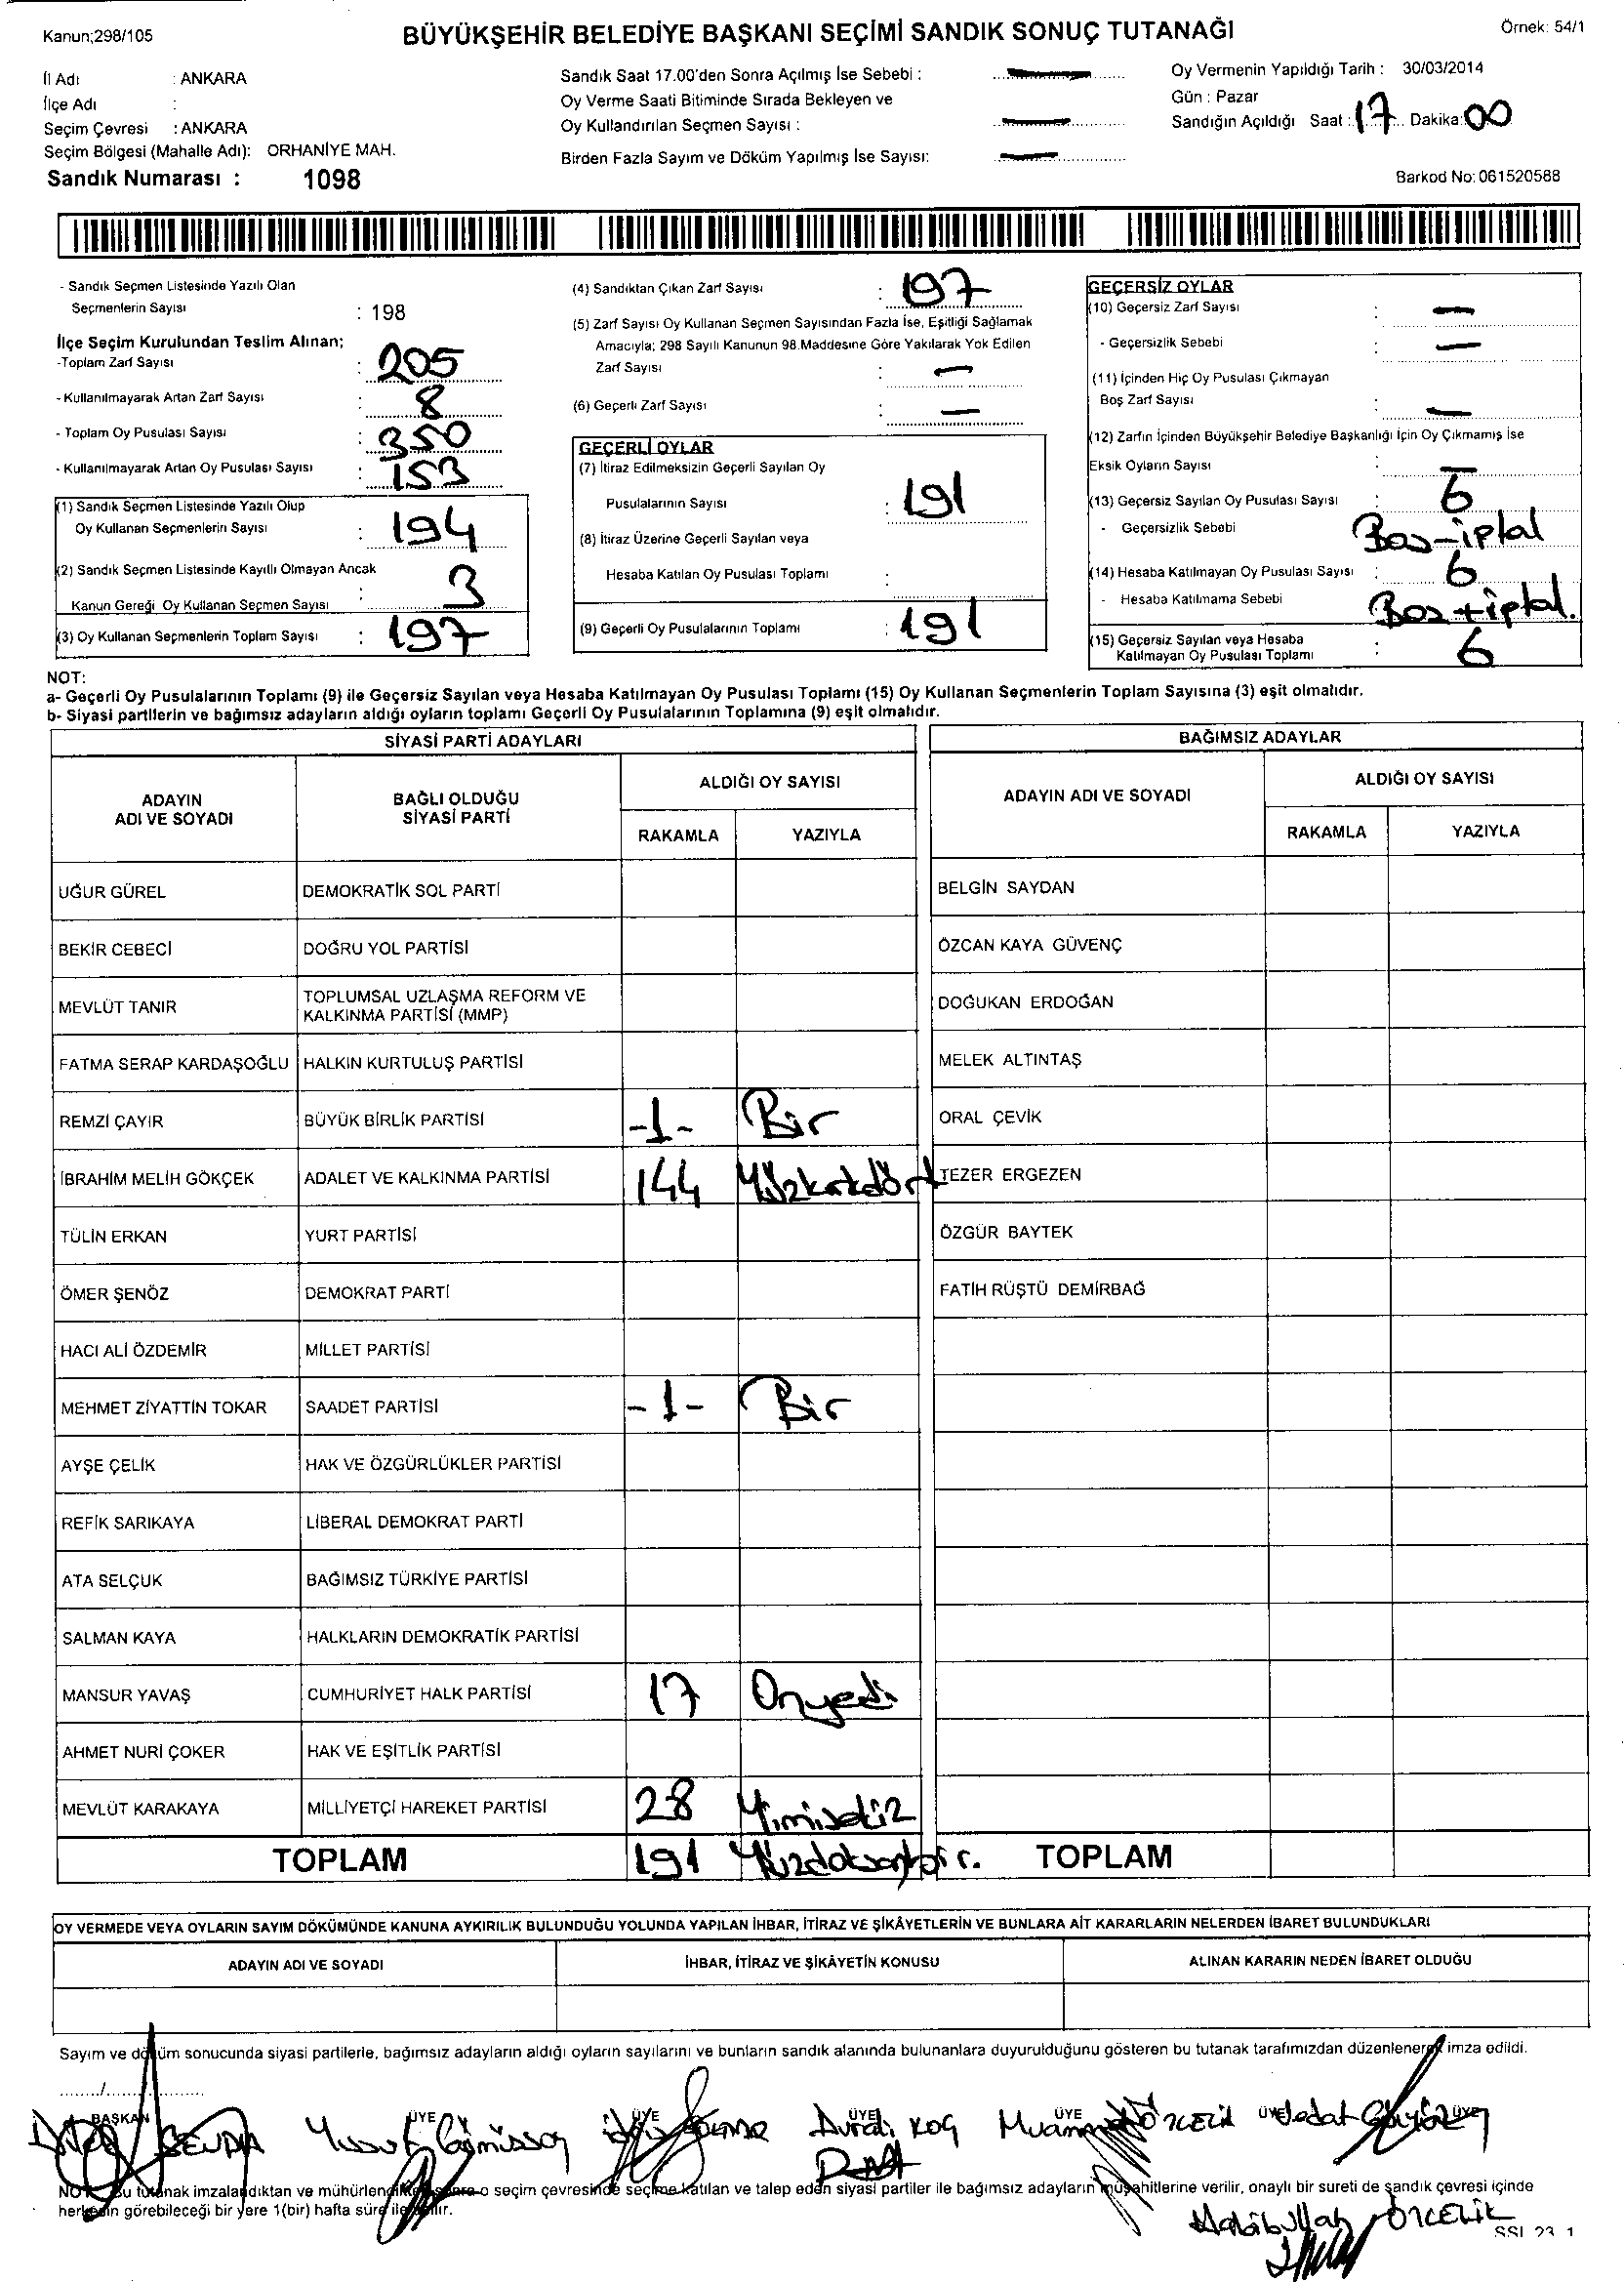 Kanun;298/105
BÜYÜKŞEHİR BELEDİYE BAŞKANI SEÇİMİ SANDIK SONUÇ TUTANAĞI
Örnek: 54/1
İl Adı : ANKARA
İlçe Adı :
Seçim Çevresi : ANKARA
Seçim Bölgesi (Mahalle Adı): ORHANİYE MAH.
Sandık Numarası : 1098
Sandık Saat 17.00'den Sonra Açılmış İse Sebebi : —
Oy Verme Saati Bitiminde Sırada Bekleyen ve
Oy Kullandırılan Seçmen Sayısı : —
Birden Fazla Sayım ve Döküm Yapılmış İse Sayısı: —
Oy Vermenin Yapıldığı Tarih : 30/03/2014
Gün : Pazar
Sandığın Açıldığı Saat : 17 Dakika: 00
Barkod No: 061520588
- Sandık Seçmen Listesinde Yazılı Olan
Seçmenlerin Sayısı : 198
İlçe Seçim Kurulundan Teslim Alınan;
-Toplam Zarf Sayısı : 205
- Kullanılmayarak Artan Zarf Sayısı : 8
- Toplam Oy Pusulası Sayısı : 350
- Kullanılmayarak Artan Oy Pusulası Sayısı : 153
(1) Sandık Seçmen Listesinde Yazılı Olup
Oy Kullanan Seçmenlerin Sayısı : 194
(2) Sandık Seçmen Listesinde Kayıtlı Olmayan Ancak
Kanun Gereği Oy Kullanan Seçmen Sayısı : 3
(3) Oy Kullanan Seçmenlerin Toplam Sayısı : 197
(4) Sandıktan Çıkan Zarf Sayısı : 197
(5) Zarf Sayısı Oy Kullanan Seçmen Sayısından Fazla İse, Eşitliği Sağlamak
Amacıyla; 298 Sayılı Kanunun 98.Maddesine Göre Yakılarak Yok Edilen
Zarf Sayısı : —
(6) Geçerli Zarf Sayısı : —
GEÇERLİ OYLAR
(7) İtiraz Edilmeksizin Geçerli Sayılan Oy
Pusulalarının Sayısı : 191
(8) İtiraz Üzerine Geçerli Sayılan veya
Hesaba Katılan Oy Pusulası Toplamı :
(9) Geçerli Oy Pusulalarının Toplamı : 191
GEÇERSİZ OYLAR
(10) Geçersiz Zarf Sayısı : —
- Geçersizlik Sebebi : —
(11) İçinden Hiç Oy Pusulası Çıkmayan
Boş Zarf Sayısı : —
(12) Zarfın İçinden Büyükşehir Belediye Başkanlığı İçin Oy Çıkmamış İse
Eksik Oyların Sayısı : —
(13) Geçersiz Sayılan Oy Pusulası Sayısı : 6
- Geçersizlik Sebebi Boş-iptal
(14) Hesaba Katılmayan Oy Pusulası Sayısı : 6
- Hesaba Katılmama Sebebi Boş+iptal.
(15) Geçersiz Sayılan veya Hesaba
Katılmayan Oy Pusulası Toplamı : 6
NOT:
a- Geçerli Oy Pusulalarının Toplamı (9) ile Geçersiz Sayılan veya Hesaba Katılmayan Oy Pusulası Toplamı (15) Oy Kullanan Seçmenlerin Toplam Sayısına (3) eşit olmalıdır.
b- Siyasi partilerin ve bağımsız adayların aldığı oyların toplamı Geçerli Oy Pusulalarının Toplamına (9) eşit olmalıdır.
SİYASİ PARTİ ADAYLARI
ADAYIN ADI VE SOYADI BAĞLI OLDUĞU SİYASİ PARTİ ALDIĞI OY SAYISI
RAKAMLA YAZIYLA
UĞUR GÜREL DEMOKRATİK SOL PARTİ
BEKİR CEBECİ DOĞRU YOL PARTİSİ
MEVLÜT TANIR TOPLUMSAL UZLAŞMA REFORM VE
KALKINMA PARTİSİ (MMP)
FATMA SERAP KARDAŞOĞLU HALKIN KURTULUŞ PARTİSİ
REMZİ ÇAYIR BÜYÜK BİRLİK PARTİSİ -1- Bir
İBRAHİM MELİH GÖKÇEK ADALET VE KALKINMA PARTİSİ 144 Yüzkırkdört
TÜLİN ERKAN YURT PARTİSİ
ÖMER ŞENÖZ DEMOKRAT PARTİ
HACI ALİ ÖZDEMİR MİLLET PARTİSİ
MEHMET ZİYATTİN TOKAR SAADET PARTİSİ -1- Bir
AYŞE ÇELİK HAK VE ÖZGÜRLÜKLER PARTİSİ
REFİK SARIKAYA LİBERAL DEMOKRAT PARTİ
ATA SELÇUK BAĞIMSIZ TÜRKİYE PARTİSİ
SALMAN KAYA HALKLARIN DEMOKRATİK PARTİSİ
MANSUR YAVAŞ CUMHURİYET HALK PARTİSİ 17 Onyedi
AHMET NURİ ÇOKER HAK VE EŞİTLİK PARTİSİ
MEVLÜT KARAKAYA MİLLİYETÇİ HAREKET PARTİSİ 28 Yimisekiz
TOPLAM 191 Yüzdoksanbir.
BAĞIMSIZ ADAYLAR
ADAYIN ADI VE SOYADI ALDIĞI OY SAYISI
RAKAMLA YAZIYLA
BELGİN SAYDAN
ÖZCAN KAYA GÜVENÇ
DOĞUKAN ERDOĞAN
MELEK ALTINTAŞ
ORAL ÇEVİK
TEZER ERGEZEN
ÖZGÜR BAYTEK
FATİH RÜŞTÜ DEMİRBAĞ
TOPLAM
OY VERMEDE VEYA OYLARIN SAYIM DÖKÜMÜNDE KANUNA AYKIRILIK BULUNDUĞU YOLUNDA YAPILAN İHBAR, İTİRAZ VE ŞİKÂYETLERİN VE BUNLARA AİT KARARLARIN NELERDEN İBARET BULUNDUKLARI
ADAYIN ADI VE SOYADI İHBAR, İTİRAZ VE ŞİKÂYETİN KONUSU ALINAN KARARIN NEDEN İBARET OLDUĞU
Sayım ve döküm sonucunda siyasi partilerle, bağımsız adayların aldığı oyların sayılarını ve bunların sandık alanında bulunanlara duyurulduğunu gösteren bu tutanak tarafımızdan düzenlenerek imza edildi.
......../......................
BAŞKAN ÜYE ÜYE ÜYE ÜYE ÜYE ÜYE
SEVDA Yusuf Avdi KOÇ ÖZCELİK Vedat
NOT: Bu tutanak imzalandıktan ve mühürlendikten sonra o seçim çevresinde seçime katılan ve talep eden siyasi partiler ile bağımsız adayların müşahitlerine verilir, onaylı bir sureti de sandık çevresi içinde
herkesin görebileceği bir yere 1(bir) hafta süre ile asılır.
Habibullah ÖZCELİK
SSI 23 1